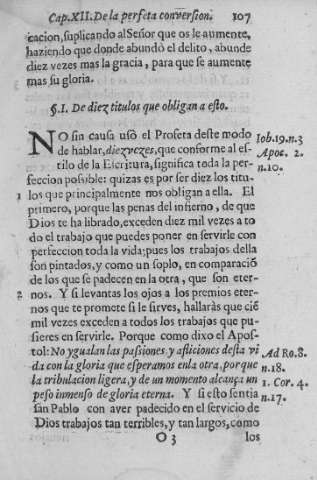 Cap. XII. De la perfeta conversion. 107
cacion, suplicando al Señor que os le aumente,
haziendo que donde abundò el delito, abunde
diez vezes mas la gracia, para que se aumente
mas su gloria.
§. I. De diez titulos que obligan a esto.
NO sin causa usò el Profeta deste modo
de hablar, diez vezes, que conforme al es- Iob. 19. n. 3
tilo de la Escritura, significa toda la per- Apoc. 2.
feccion possible: quizas es por ser diez los titu- n. 10.
1 los que principalmente nos obligan a ella. El
primero, porque las penas del infierno, de que
Dios te ha librado, exceden diez mil vezes a to
do el trabajo que puedes poner en servirle con
perfeccion toda la vida; pues los trabajos della
son pintados, y como un soplo, en comparació
de los que se padecen en la otra, que son eter-
2 nos. Y si levantas los ojos a los premios eter-
nos que te promete si le sirves, hallaràs que cié
mil vezes exceden a todos los trabajos que pu-
sieres en servirle. Porque como dixo el Apos-
tol: No ygualan las passiones y afliciones desta vi Ad Ro. 8.
da con la gloria que esperamos en la otra, porque n. 18.
la tribulacion ligera, y de un momento alcança un 1. Cor. 4.
peso inmenso de gloria eterna. Y si esto sentia n. 17.
san Pablo con aver padecido en el servicio de
Dios trabajos tan terribles, y tan largos, como
O 3 los